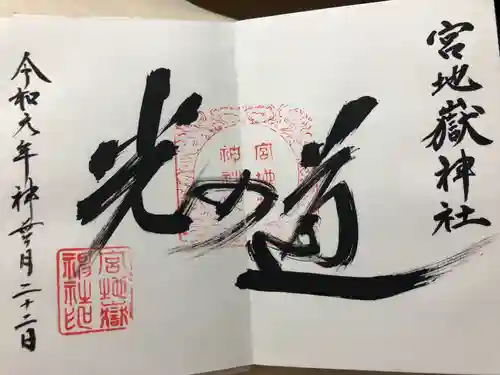 宮地嶽神社
光の道
令和元年神無月二十二日
宮地
神社
宮地嶽
神社印